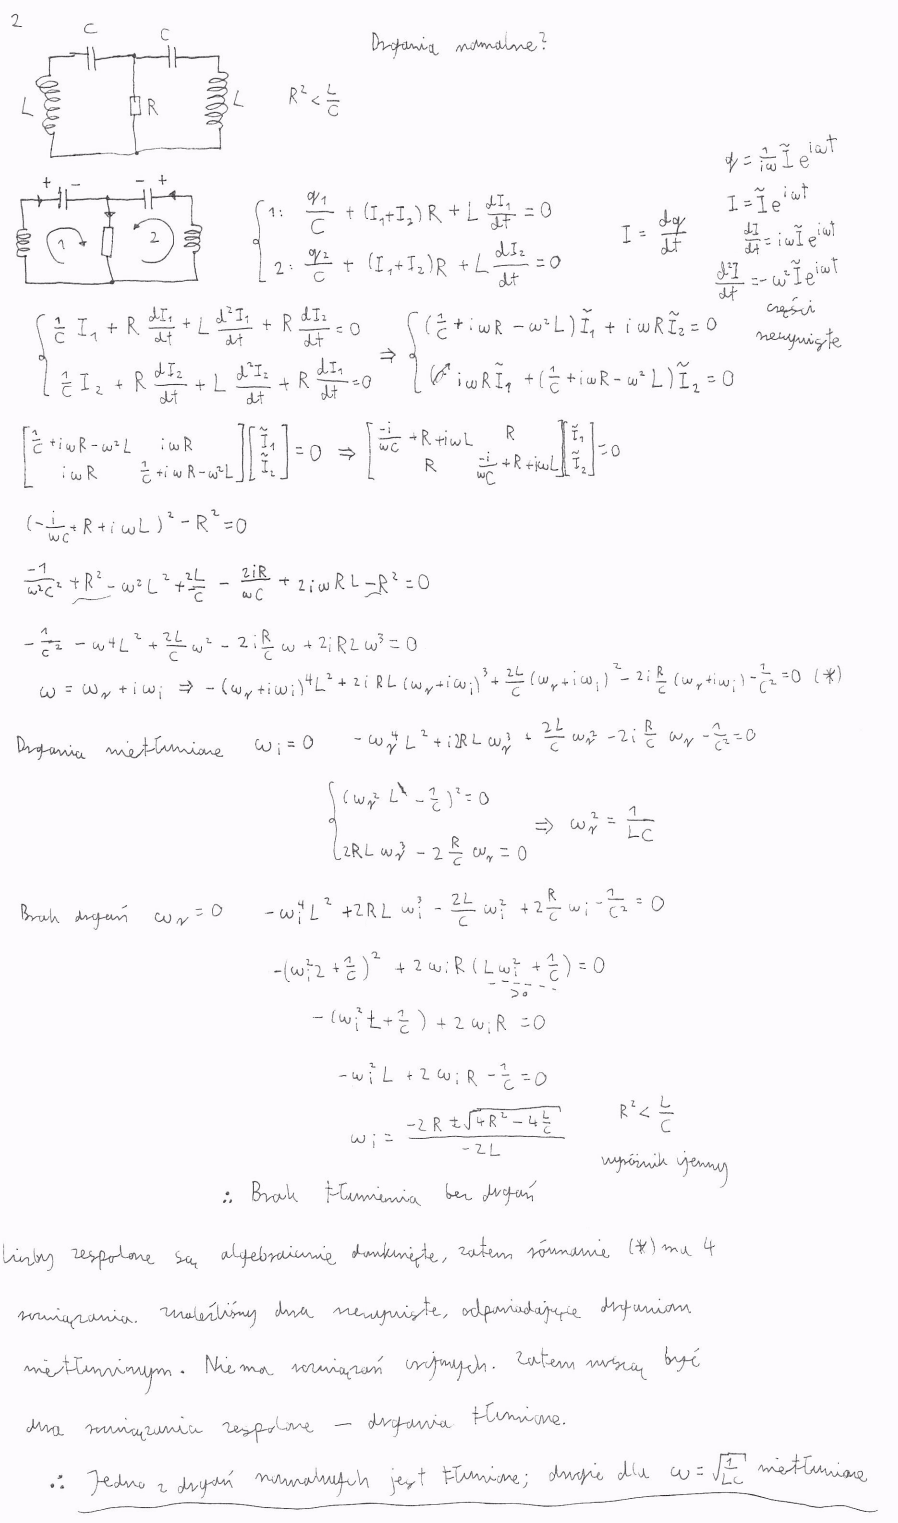 2
C C
Drgania normalne?
L R L
R² < L/C
q = 1/(iω) Ĩ e^{iωt}
I = Ĩ e^{iωt}
dI/dt = iω Ĩ e^{iωt}
d²I/dt = -ω² Ĩ e^{iωt}
części
rzeczywiste
+ - - +
1 2
1: q₁/C + (I₁+I₂)R + L dI₁/dt = 0
2: q₂/C + (I₁+I₂)R + L dI₂/dt = 0
I = dq/dt
{ 1/C I₁ + R dI₁/dt + L d²I₁/dt + R dI₂/dt = 0 ⇒ { (1/C + iωR - ω²L) Ĩ₁ + iωR Ĩ₂ = 0
{ 1/C I₂ + R dI₂/dt + L d²I₂/dt + R dI₁/dt = 0 { iωR Ĩ₁ + (1/C + iωR - ω²L) Ĩ₂ = 0
[1/C + iωR - ω²L iωR] [Ĩ₁] = 0 ⇒ [-i/(ωC) + R + iωL R] [Ĩ₁] = 0
[iωR 1/C + iωR - ω²L] [Ĩ₂] [R -i/(ωC) + R + iωL] [Ĩ₂]
(-i/(ωC) + R + iωL)² - R² = 0
-1/(ω²C²) + R² - ω²L² + 2L/C - 2iR/(ωC) + 2iωRL - R² = 0
-1/C² - ω⁴L² + 2L/C ω² - 2i R/C ω + 2iRLω³ = 0
ω = ωᵣ + iωᵢ ⇒ -(ωᵣ+iωᵢ)⁴L² + 2iRL(ωᵣ+iωᵢ)³ + 2L/C (ωᵣ+iωᵢ)² - 2i R/C (ωᵣ+iωᵢ) - 1/C² = 0 (*)
Drgania nietłumione ωᵢ = 0 -ωᵣ⁴L² + i2RLωᵣ³ + 2L/C ωᵣ² - 2i R/C ωᵣ - 1/C² = 0
{ (ωᵣ² L - 1/C)² = 0
{ 2RLωᵣ³ - 2 R/C ωᵣ = 0 ⇒ ωᵣ² = 1/(LC)
Brak drgań ωᵣ = 0 -ωᵢ⁴L² + 2RLωᵢ³ - 2L/C ωᵢ² + 2 R/C ωᵢ - 1/C² = 0
-(ωᵢ²L + 1/C)² + 2ωᵢR(Lωᵢ² + 1/C) = 0
>0
-(ωᵢ²L + 1/C) + 2ωᵢR = 0
-ωᵢ²L + 2ωᵢR - 1/C = 0
ωᵢ = (-2R ± √(4R² - 4 L/C))/(-2L) R² < L/C
wyróżnik ujemny
∴ Brak tłumienia bez drgań
Liczby zespolone są algebraicznie domknięte, zatem równanie (*) ma 4
rozwiązania. Znaleźliśmy dwa rzeczywiste, odpowiadające drganiom
nietłumionym. Nie ma rozwiązań urojonych. Zatem muszą być
dwa rozwiązania zespolone — drgania tłumione.
∴ Jedno z drgań normalnych jest tłumione; drugie dla ω = √(1/LC) nietłumione